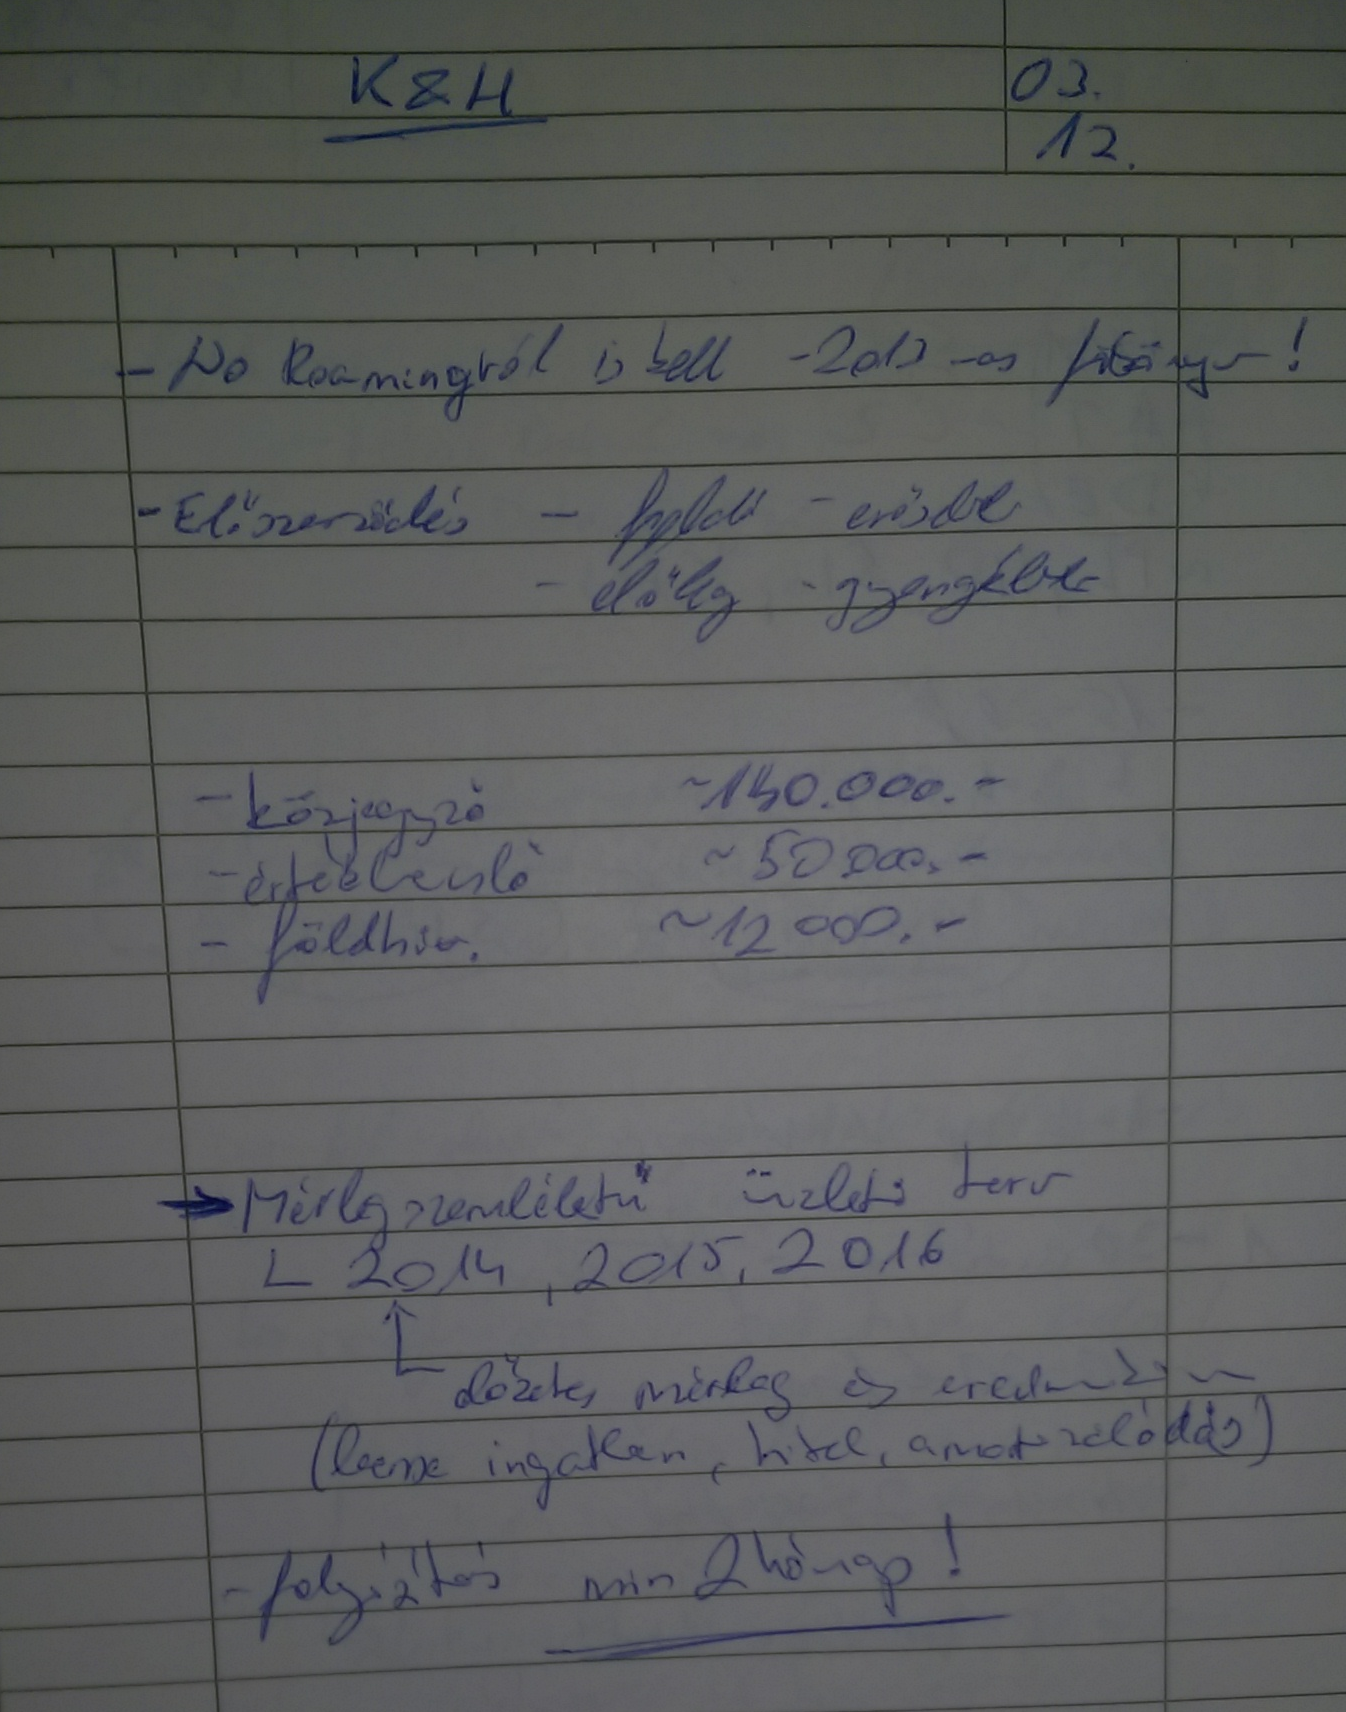 K&H
03.
12.
- No Roamingról is kell - 2013 -as főkönyv!
- Előszerződés - foglaló - erősebb
- előleg - gyengébb
- közjegyző ~140.000.-
- értékbecslő ~50 000.-
- földhiv. ~12 000.-
→ Mérlegszemléletű üzleti terv
L 2014, 2015, 2016
előzetes mérleg és eredménykim
(benne ingatlan, hitel, amortizálódás)
- folyósítás min 2 hónap!